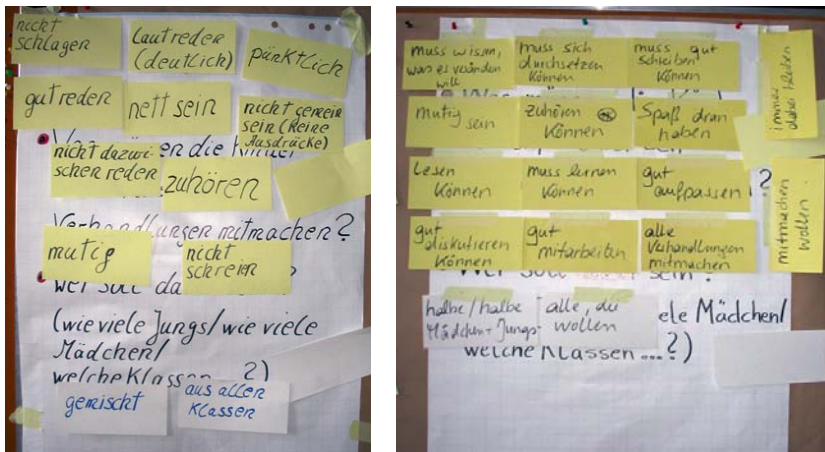 nicht
schlagen
Laut reden
(deutlich)
pünktlich
gut reden
nett sein
nicht gemein
sein (Keine
Ausdrücke)
en die
nicht dazwi-
schen reden
zuhören
Verhandlungen mitmachen?
mutig
nicht
schreien
wer soll da
(wie viele Jungs/wie viele
Mädchen/
welche Klassen ...?)
gemischt
aus allen
Klassen
muss wissen,
was es verändern
will
muss sich
durchsetzen
können
muss gut
schreiben
können
immer
dabei bleiben
mutig sein
zuhören
können
Spaß dran
haben
lesen
können
muss lernen
können
gut
aufpassen
?
mitmachen
wollen
gut
diskutieren
können
gut
mitarbeiten
alle
Verhandlungen
mitmachen
wer soll sein?
halbe/halbe
Mädchen + Jungs
alle, die
wollen
ele Mädchen/
welche Klassen ...?)